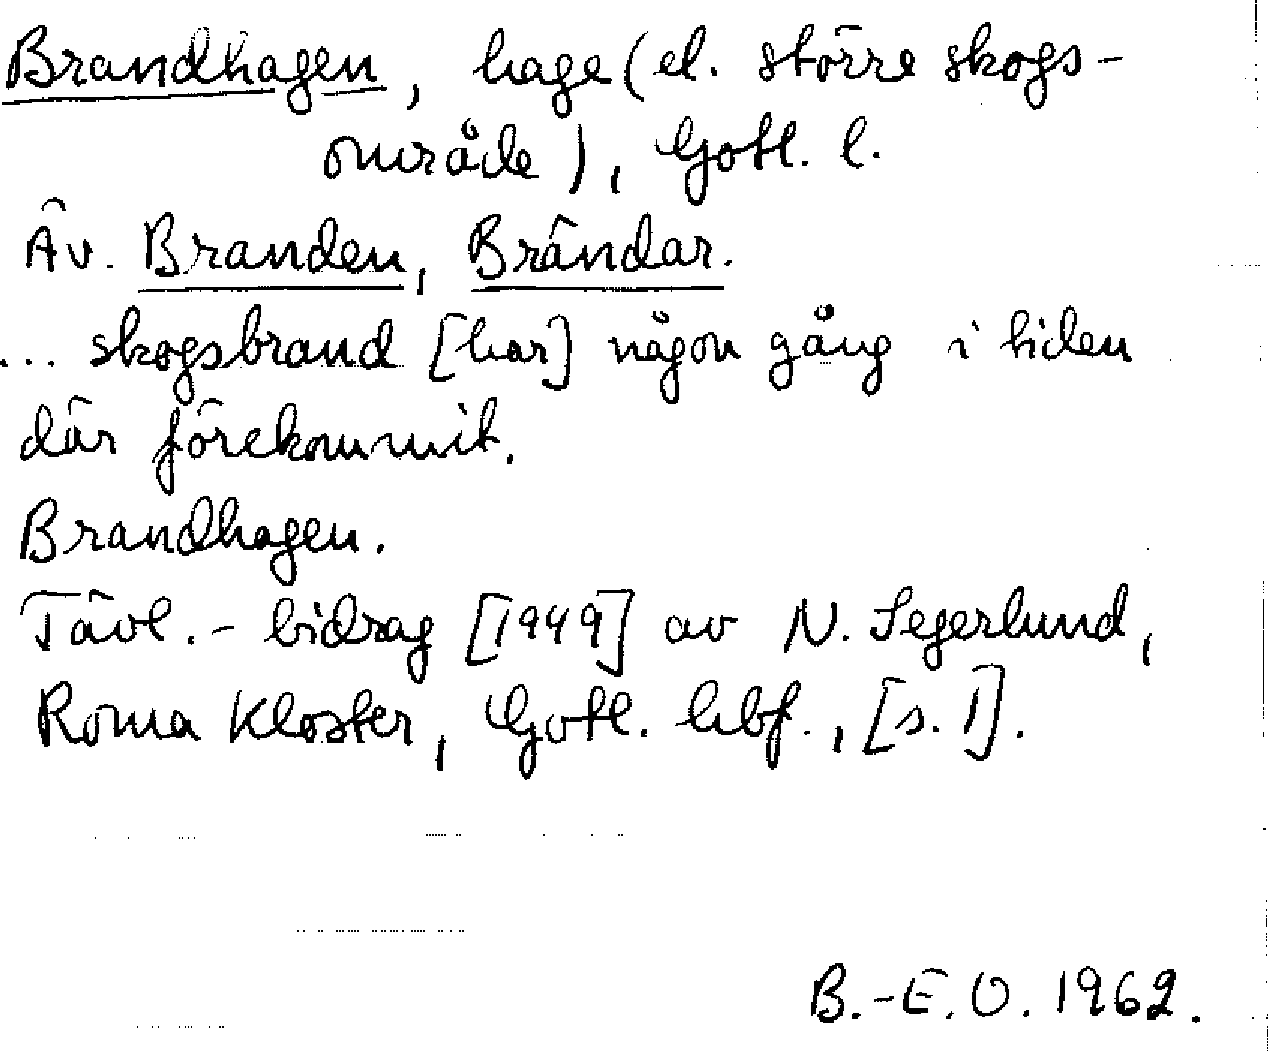 Brandhagen, hage (el. större skogs-
område), Gotl. l.
Äv. Branden, Brändar.
... skogsbrand [har] någon gång i tiden
där förekommit.
Brandhagen.
Tävl.-bidrag [1949] av N. Segerlund,
Roma Kloster, Gotl. hbf., [s. 1].
B.-E. O. 1962.